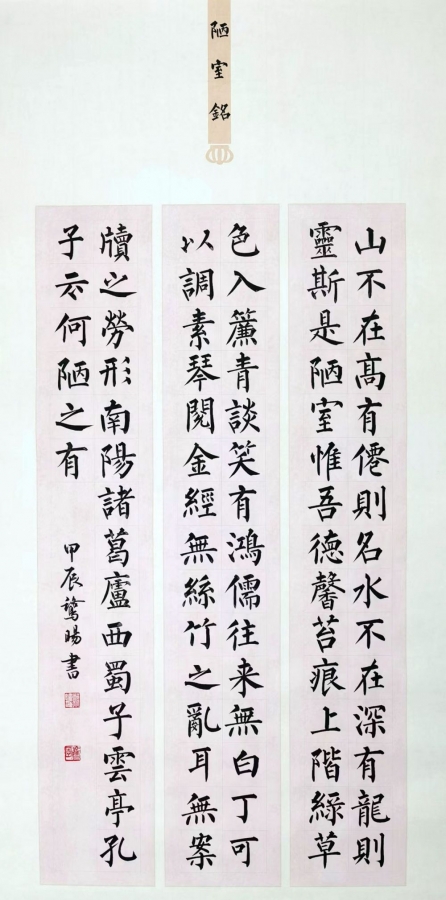 陋室銘
山不在髙有僊則名水不在深有龍則
靈斯是陋室惟吾德馨苔痕上階綠草
色入簾青談笑有鴻儒往来無白丁可
以調素琴閱金經無絲竹之亂耳無案
牘之勞形南陽諸葛廬西蜀子雲亭孔
子云何陋之有
甲辰暘書